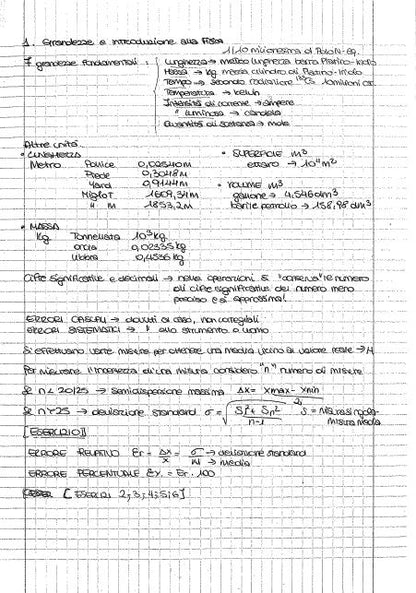 1. Grandezze e introduzione alla Fisica
1/10 milionesimo di Polo N-Eq.
7 grandezze fondamentali: Lunghezza → metro lunghezza barra Platino-Iridio
Massa → kg massa cilindro di Platino-Iridio
Tempo → secondo radiazione ¹³³Cs
Temperatura → kelvin
Intensità di corrente → ampere
" luminosa → candela
Quantità di sostanza → mole
Altre unità.
• LUNGHEZZA
Metro Pollice 0,02540m
Piede 0,3048m
Yard 0,9144m
Miglio T 1609,34m
" M 1853,2m
• SUPERFICIE m²
ettaro → 10⁴m²
• VOLUME m³
gallone → 4,546dm³
barile petrolio → 158,98dm³
• MASSA
Kg Tonnellata 10³kg
oncia 0,02835kg
libbra 0,4536kg
Cifre significative e decimali → nelle operazioni si "conserva" il numero
di cifre significative del numero meno
preciso e si approssima!
ERRORI CASUALI → dovuti al caso, non correggibili
ERRORI SISTEMATICI → " allo strumento o uomo
Si effettuano varie misure per ottenere una media vicino al valore reale → M
Per misurare l'incertezza di una misura considero "n" numero di misure
Se n < 20/25 → semidispersione massima Δx = xmax - xmin / 2
Se n > 25 → deviazione standard σ = √ S₁² + Sn² / n-1 S = misura singola - misura media
[ESERCIZIO 1]
ERRORE RELATIVO Er = Δx / x = σ / M → deviazione standard → media
ERRORE PERCENTUALE E% = Er · 100
[ESERCIZI 2; 3; 4; 5; 6]